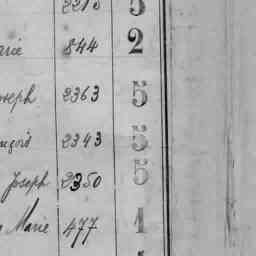 2213 5
arie 844 2
oseph 2363 5
nçois 2343 5
Joseph 2350 5
Marie 477 1